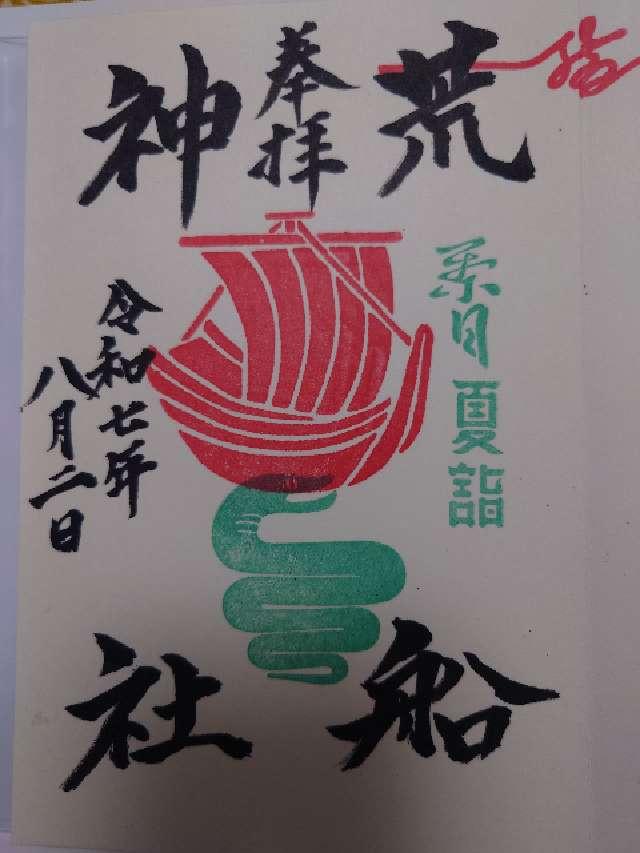 奉拝
荒船
神社
葉月
夏詣
令和七年
八月二日